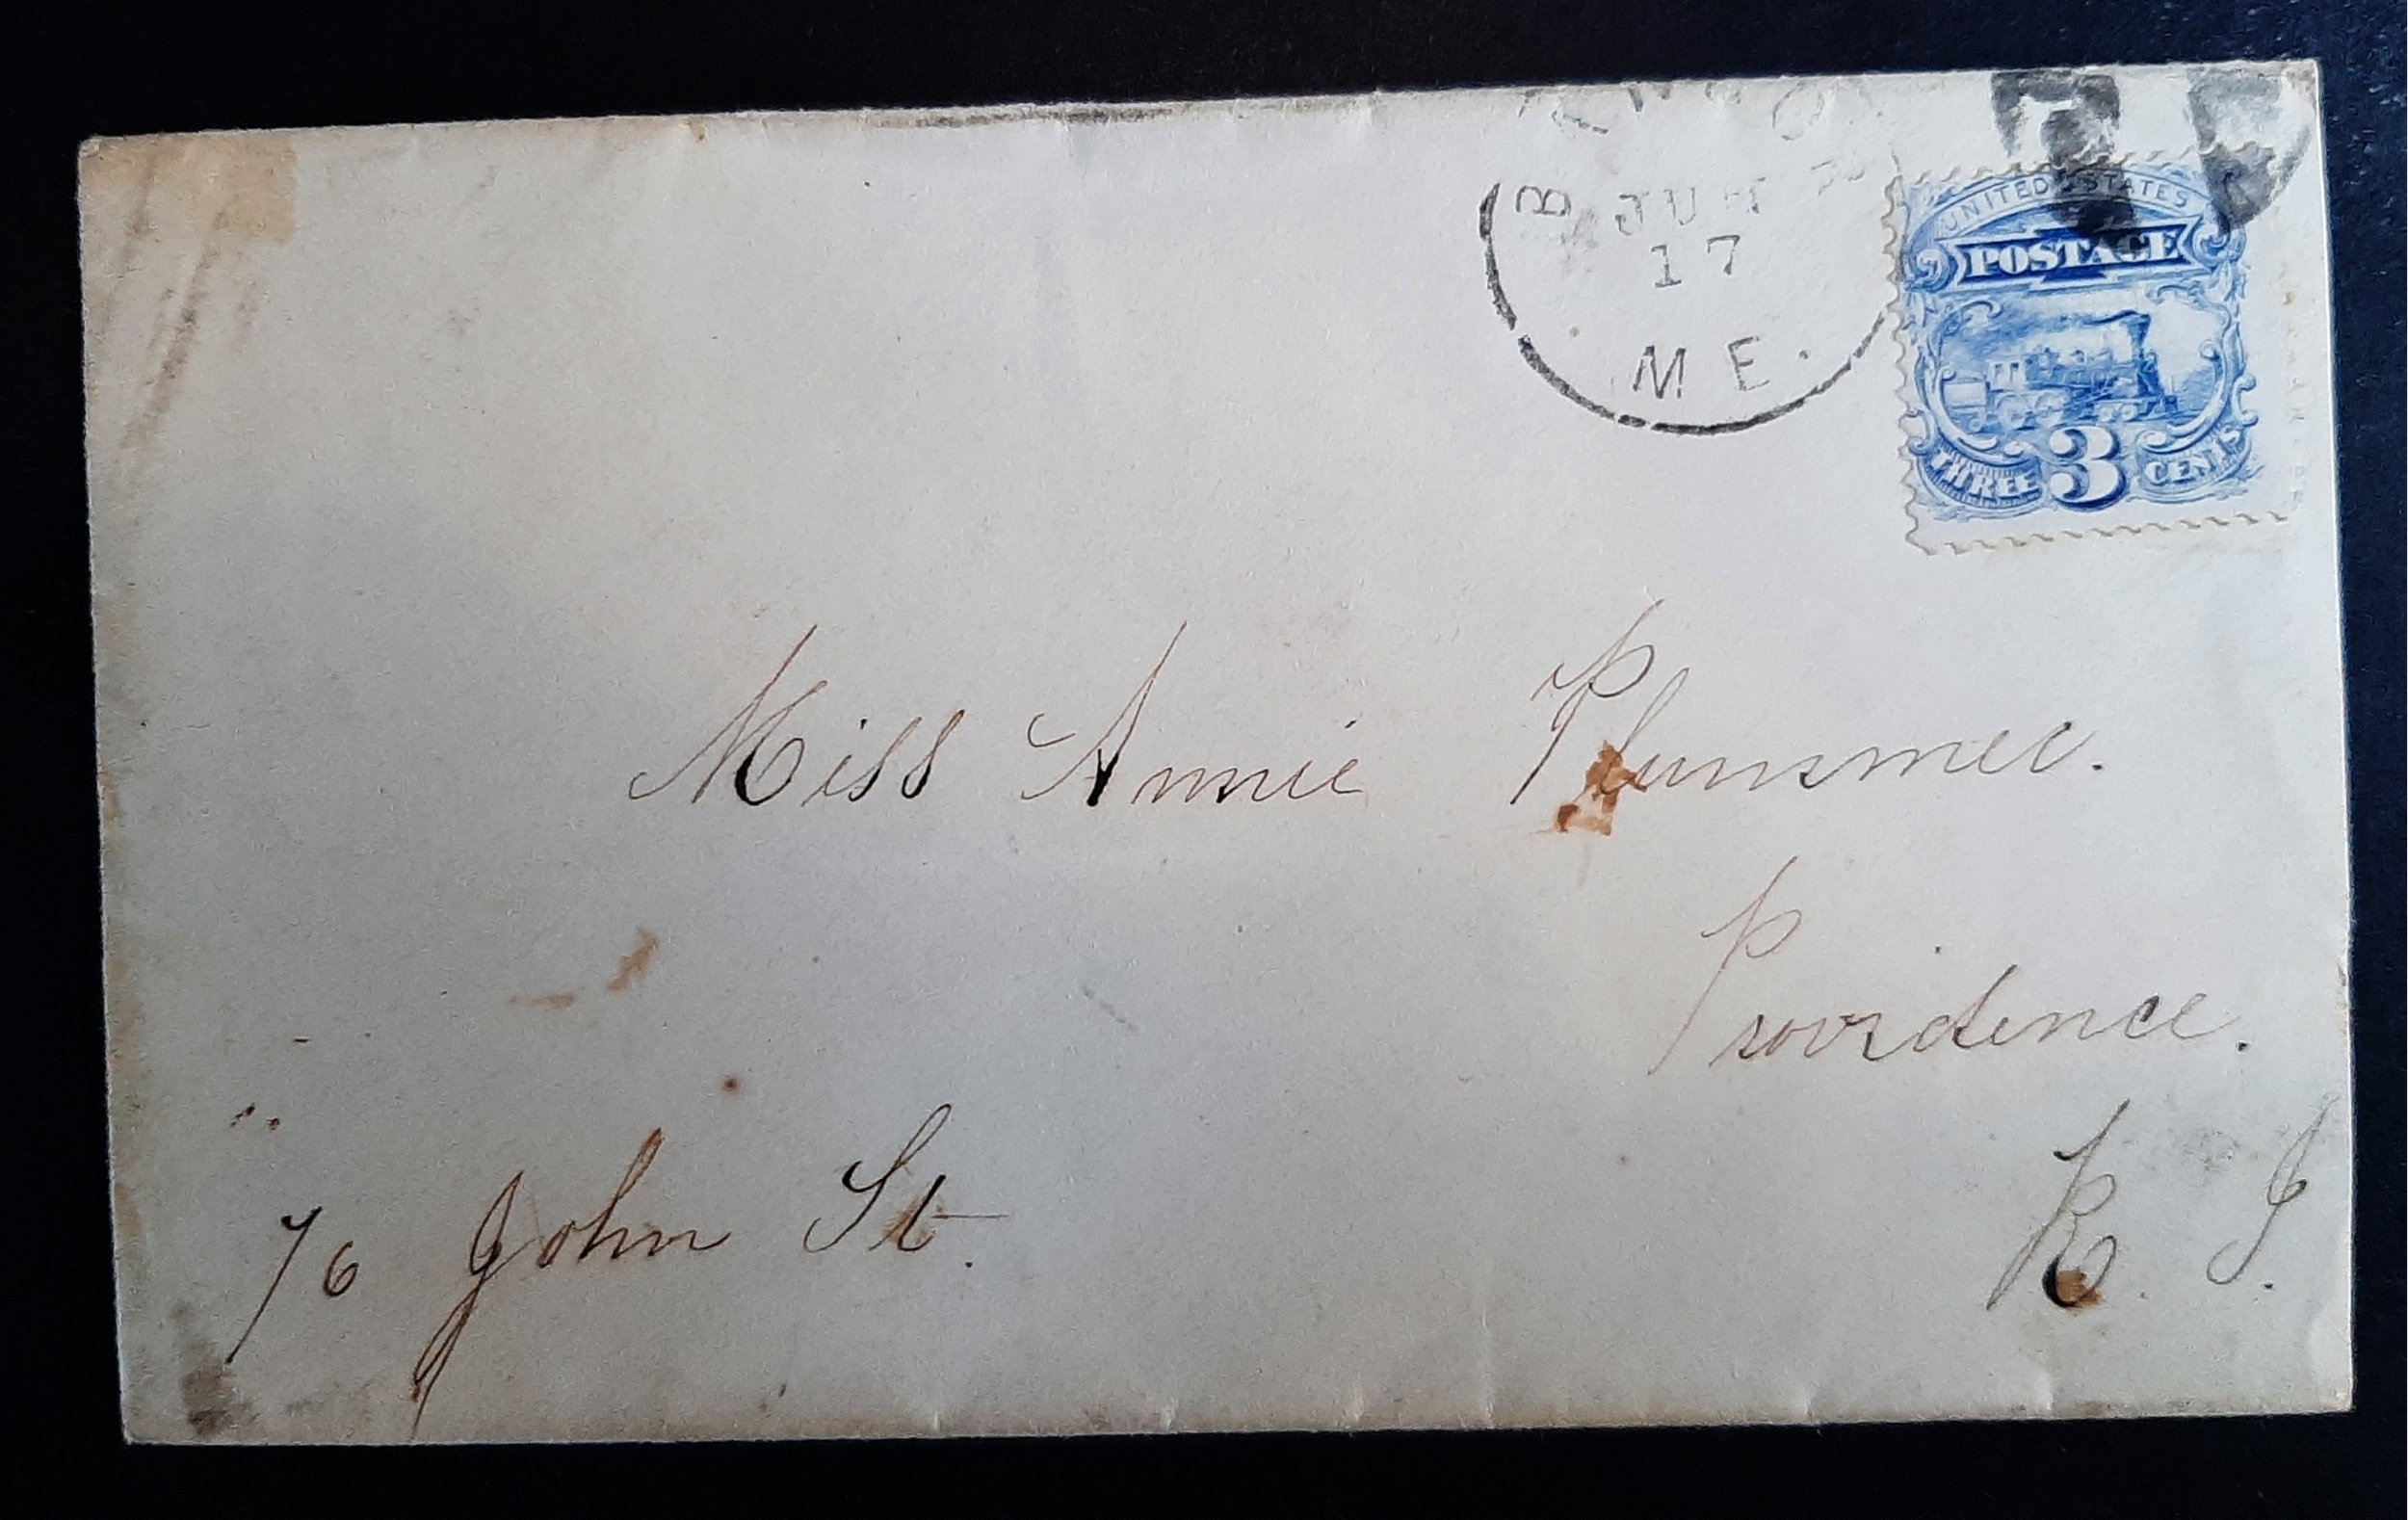 JUN
17
M E.
UNITED STATES
POSTAGE
THREE 3 CENTS
Miss Annie Plummer.
Providence.
R. I.
76 John St.